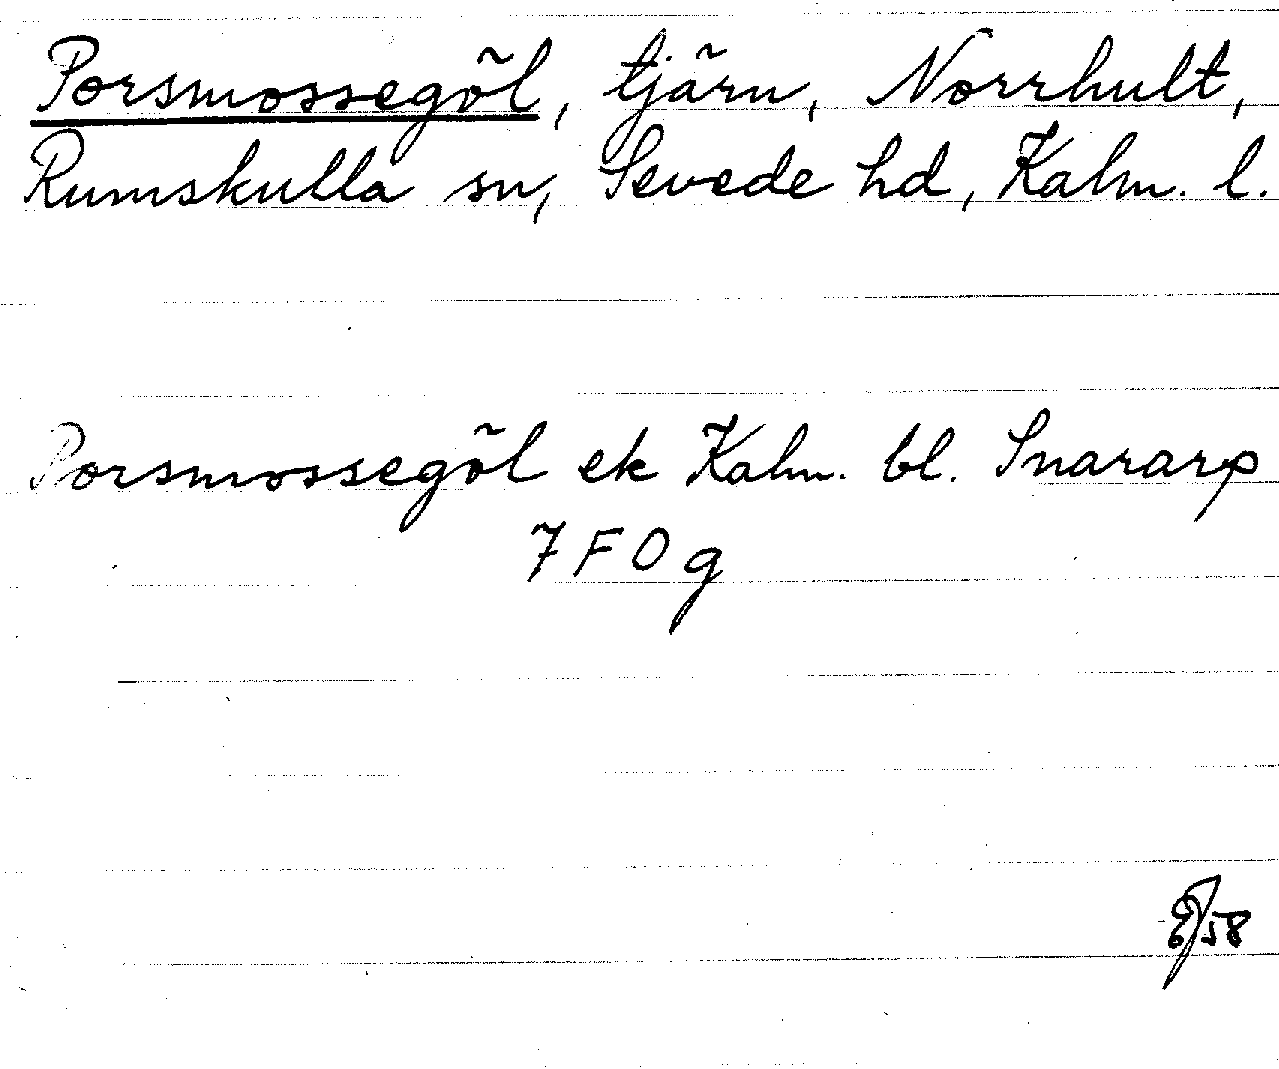 Porsmossegöl, tjärn, Norrhult,
Rumskulla sn, Sevede hd, Kalm. l.
Porsmossegöl ek Kalm. bl. Snararp
7 F 0 g
58